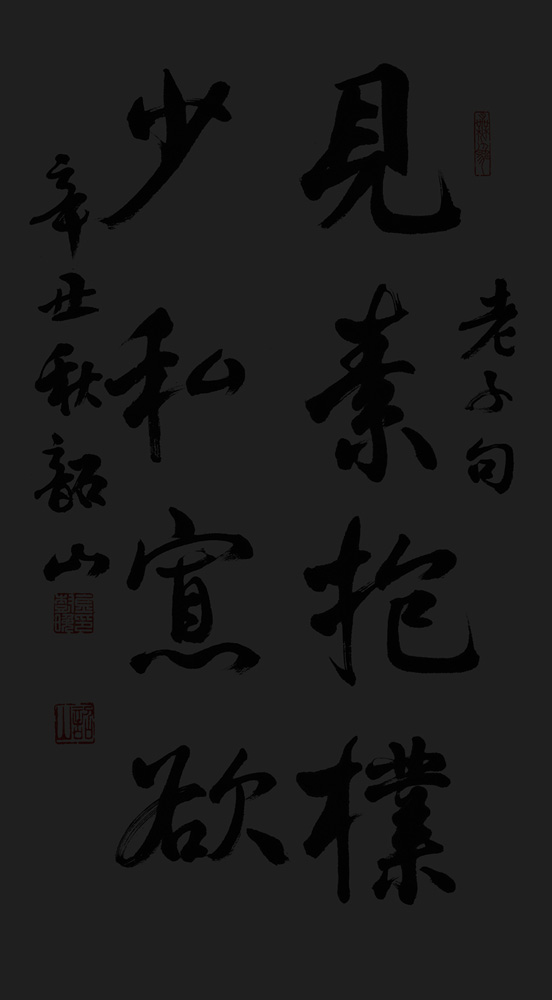 老子句
見素抱樸
少私寡欲
辛丑秋韶山